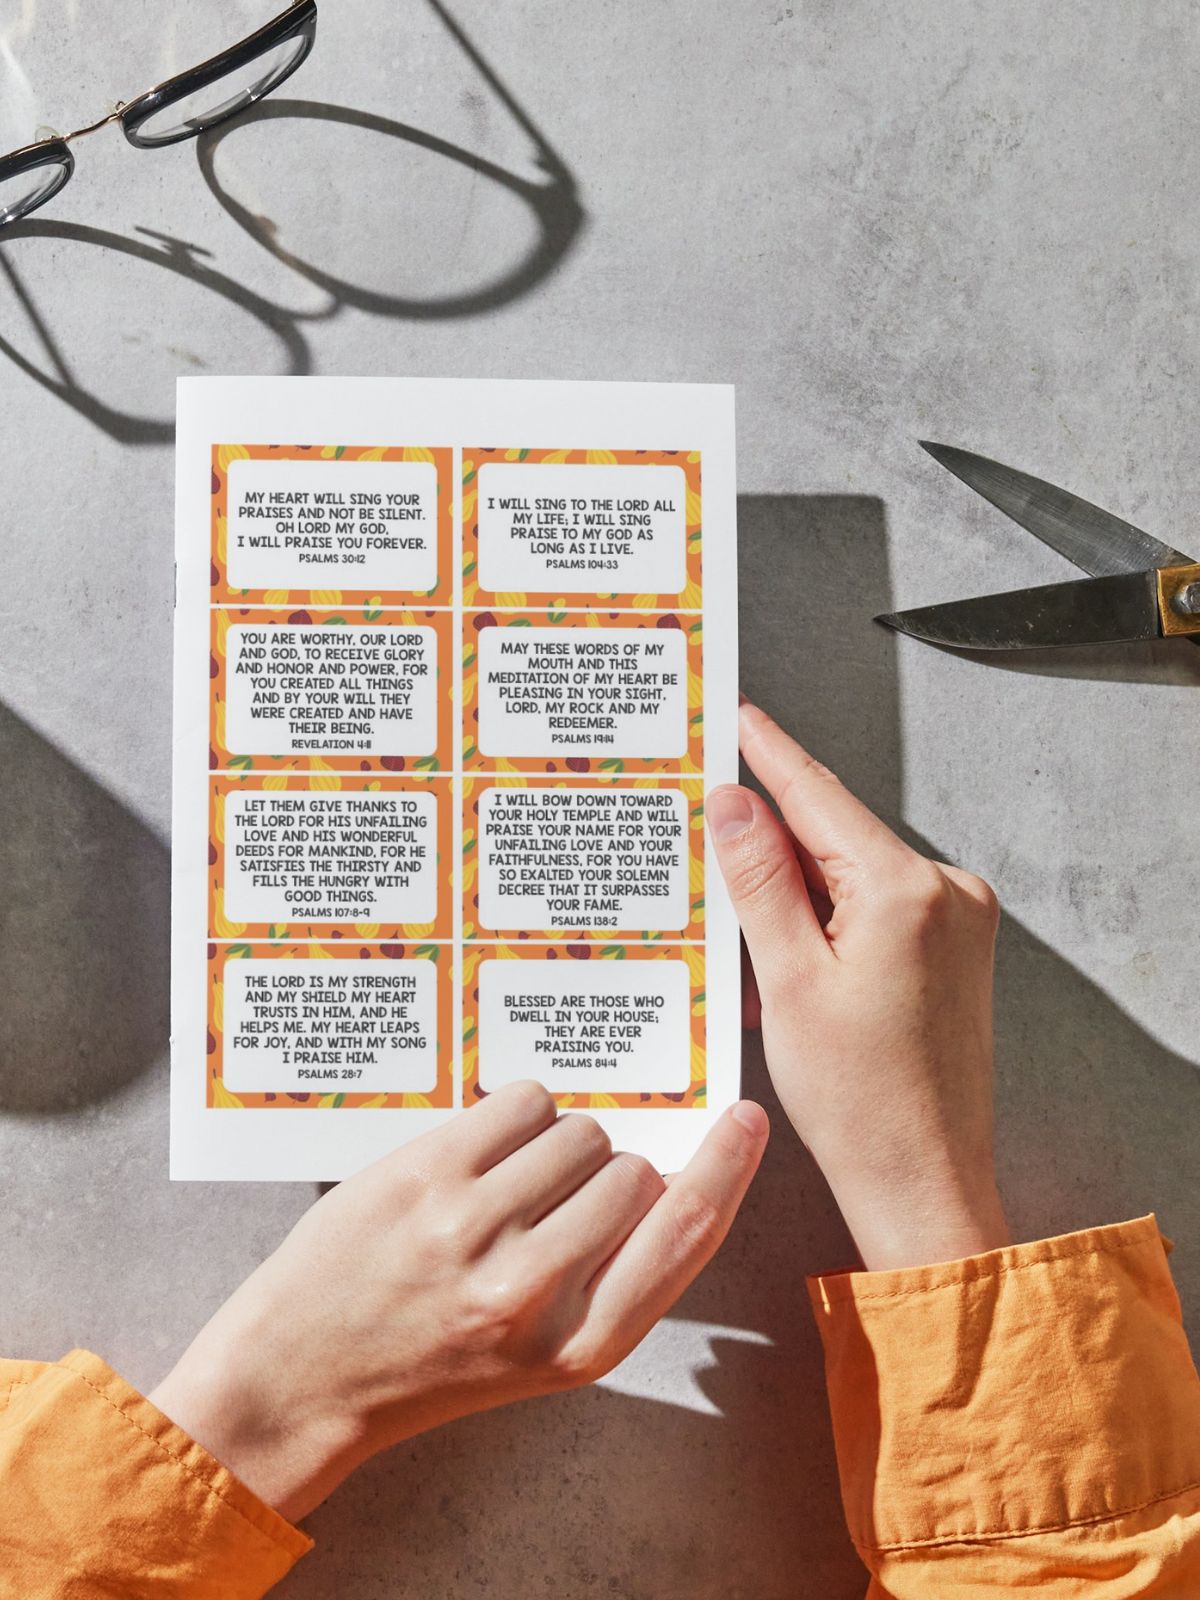 MY HEART WILL SING YOUR
PRAISES AND NOT BE SILENT.
OH LORD MY GOD,
I WILL PRAISE YOU FOREVER.
PSALMS 30:12
I WILL SING TO THE LORD ALL
MY LIFE; I WILL SING
PRAISE TO MY GOD AS
LONG AS I LIVE.
PSALMS 104:33
YOU ARE WORTHY, OUR LORD
AND GOD, TO RECEIVE GLORY
AND HONOR AND POWER, FOR
YOU CREATED ALL THINGS
AND BY YOUR WILL THEY
WERE CREATED AND HAVE
THEIR BEING.
REVELATION 4:11
MAY THESE WORDS OF MY
MOUTH AND THIS
MEDITATION OF MY HEART BE
PLEASING IN YOUR SIGHT,
LORD, MY ROCK AND MY
REDEEMER.
PSALMS 19:14
LET THEM GIVE THANKS TO
THE LORD FOR HIS UNFAILING
LOVE AND HIS WONDERFUL
DEEDS FOR MANKIND, FOR HE
SATISFIES THE THIRSTY AND
FILLS THE HUNGRY WITH
GOOD THINGS.
PSALMS 107:8-9
I WILL BOW DOWN TOWARD
YOUR HOLY TEMPLE AND WILL
PRAISE YOUR NAME FOR YOUR
UNFAILING LOVE AND YOUR
FAITHFULNESS, FOR YOU HAVE
SO EXALTED YOUR SOLEMN
DECREE THAT IT SURPASSES
YOUR FAME.
PSALMS 138:2
THE LORD IS MY STRENGTH
AND MY SHIELD MY HEART
TRUSTS IN HIM, AND HE
HELPS ME. MY HEART LEAPS
FOR JOY, AND WITH MY SONG
I PRAISE HIM.
PSALMS 28:7
BLESSED ARE THOSE WHO
DWELL IN YOUR HOUSE;
THEY ARE EVER
PRAISING YOU.
PSALMS 84:4